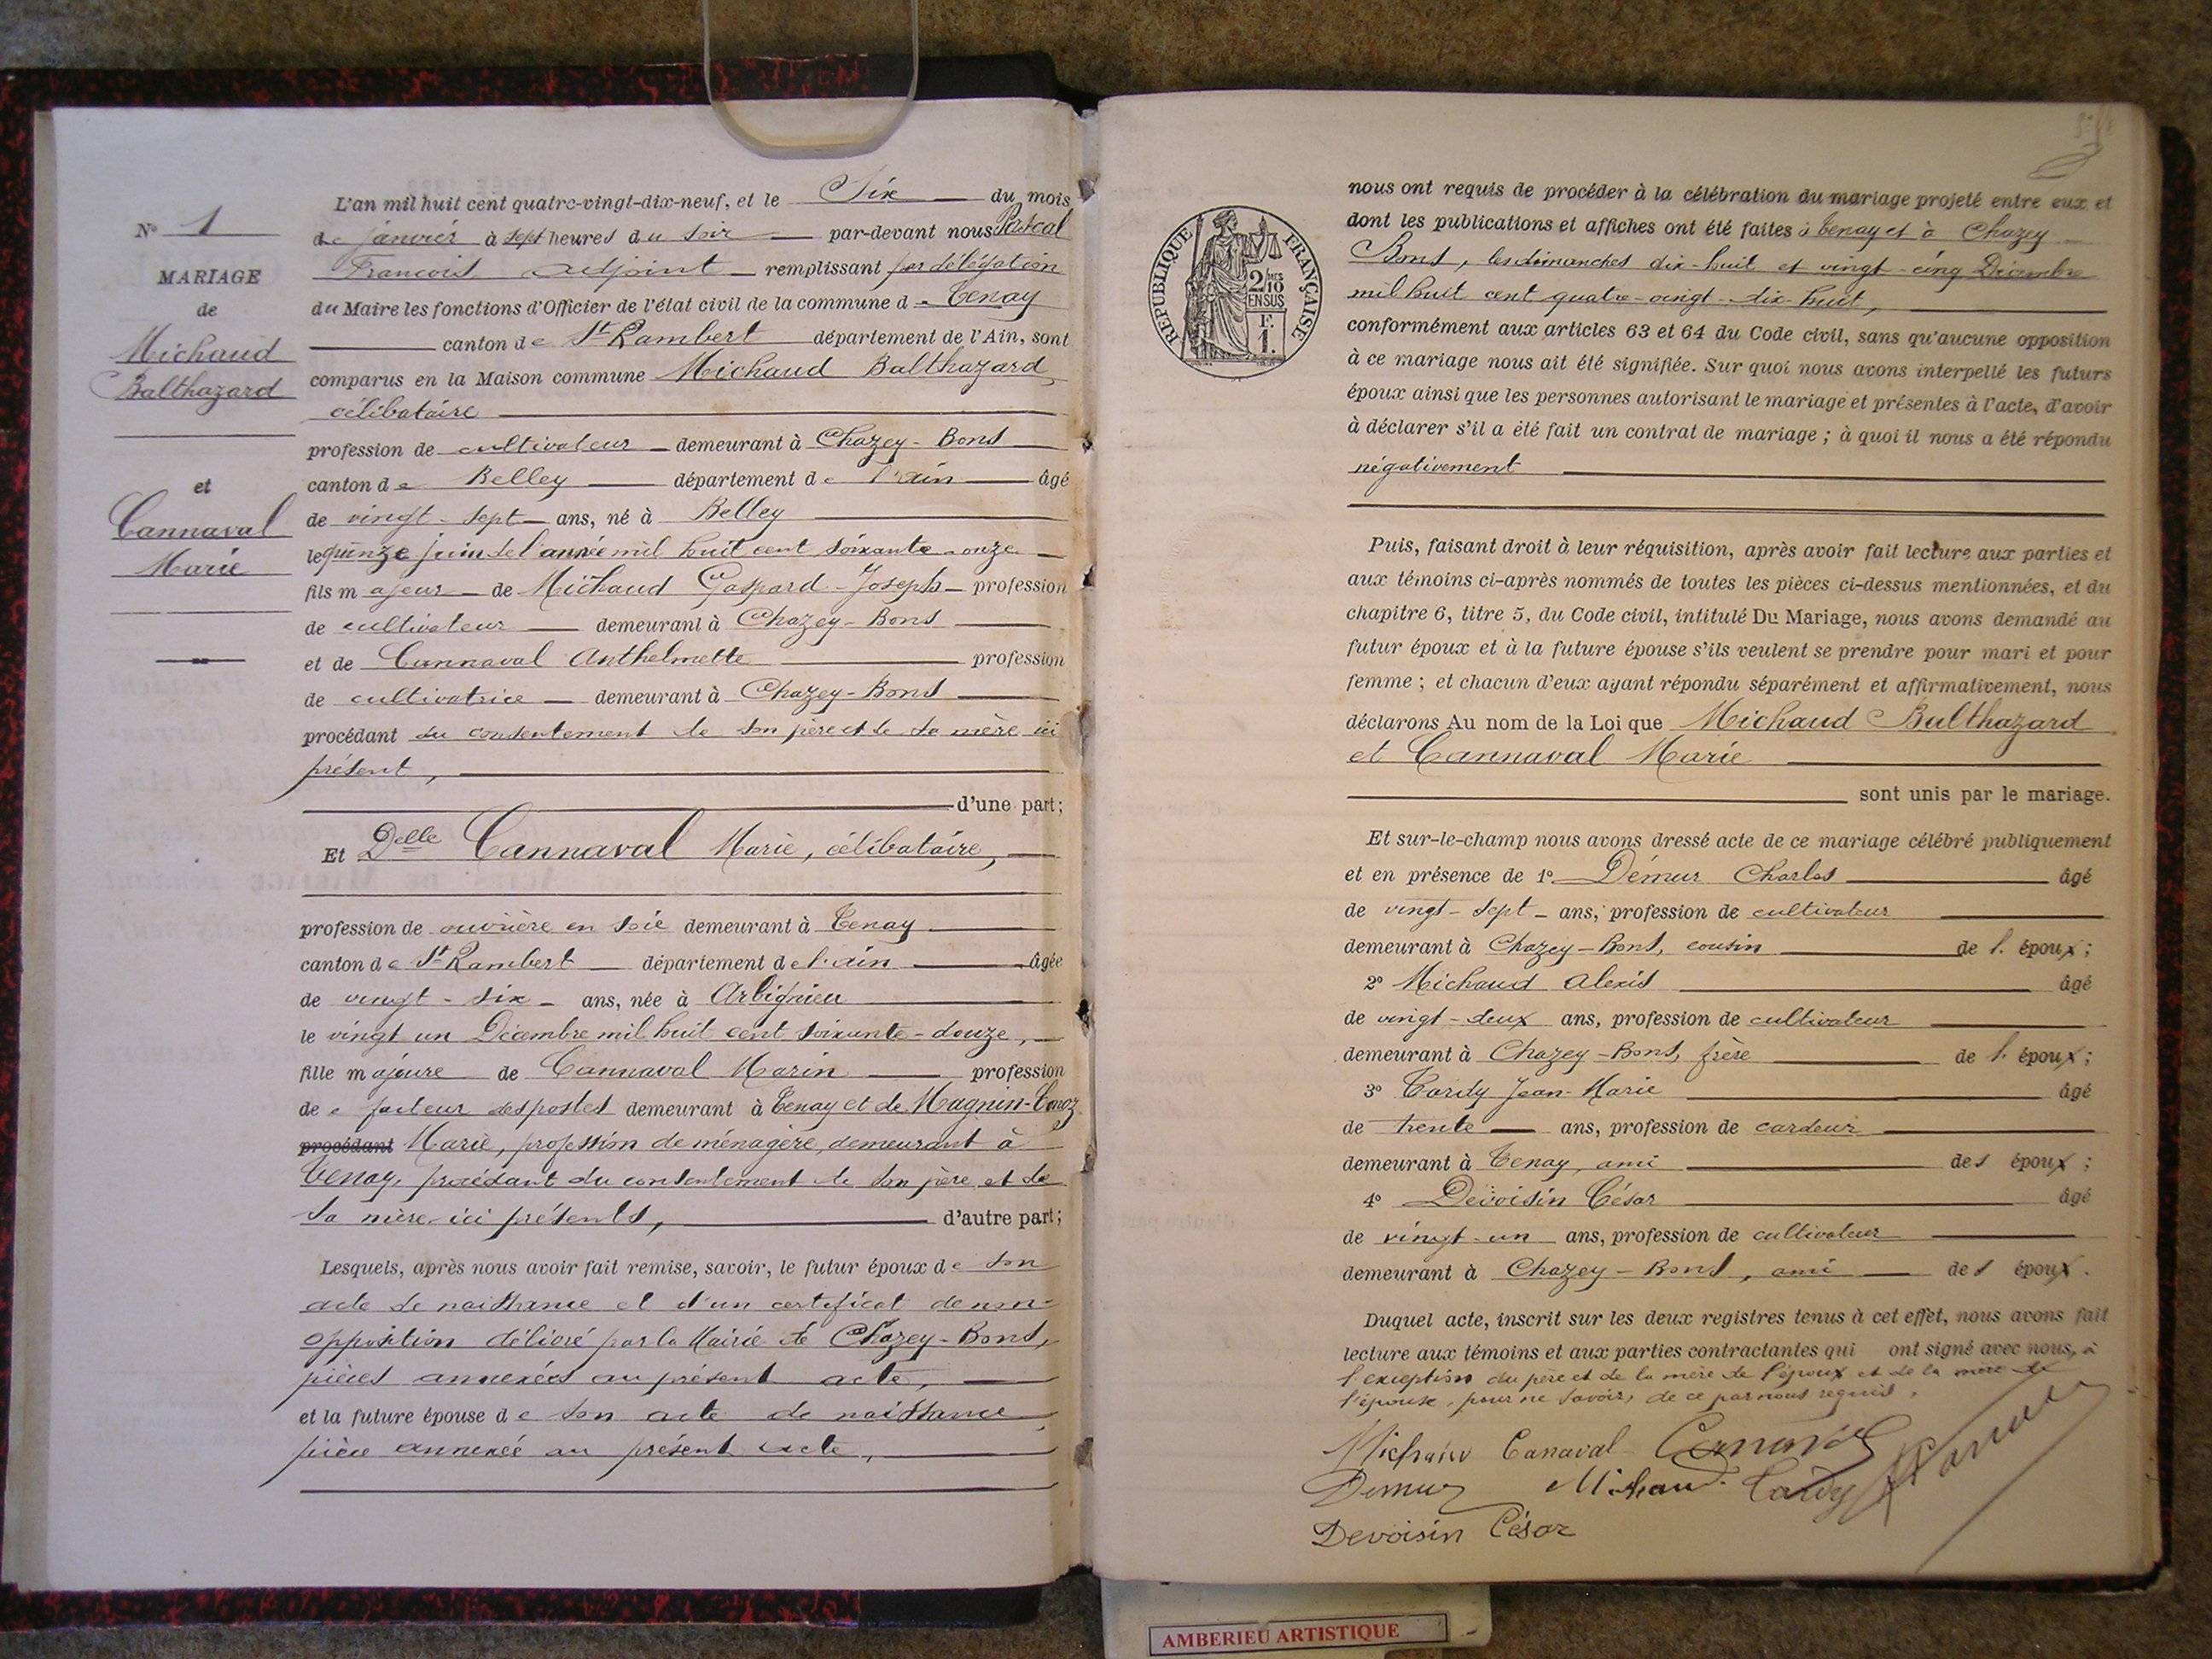 N° 1
MARIAGE
de
Michaud
Balthazard
et
Cannaval
Marie
L'an mil huit cent quatre-vingt-dix-neuf, et le Six du mois
de janvier à sept heures du soir par-devant nous Pascal
François adjoint remplissant par délégation
du Maire les fonctions d'Officier de l'état civil de la commune de Tenay
canton de St Rambert département de l'Ain, sont
comparus en la Maison commune Michaud Balthazard,
célibataire
profession de cultivateur demeurant à Chazey-Bons
canton de Belley département de l'ain âgé
de vingt-sept ans, né à Belley
le quinze juin de l'année mil huit cent soixante-onze
fils majeur de Michaud Gaspard-Joseph profession
de cultivateur demeurant à Chazey-Bons
et de Cannaval Anthelmette profession
de cultivatrice demeurant à Chazey-Bons
procédant du consentement de son père et de sa mère ici
présent,
d'une part;
Et Delle Cannaval Marie, célibataire,
profession de ouvrière en soie demeurant à Tenay
canton de St Rambert département de l'ain âgée
de vingt-six ans, née à Arbignieu
le vingt un Décembre mil huit cent soixante-douze,
fille majeure de Cannaval Marin profession
de facteur des postes demeurant à Tenay et de Magnin-
procédant Marie, profession de ménagère, demeurant à
Tenay, procédant du consentement de son père et de
sa mère ici présents, d'autre part;
Lesquels, après nous avoir fait remise, savoir, le futur époux de son
acte de naissance et d'un certificat de non-
opposition délivré par la Mairie de Chazey-Bons,
pièces annexées au présent acte,
et la future épouse de son acte de naissance
pièce annexée au présent acte,
RÉPUBLIQUE FRANÇAISE
2/10
EN SUS
F.
1.
nous ont requis de procéder à la célébration du mariage projeté entre eux et
dont les publications et affiches ont été faites à Tenay et à Chazey
Bons, les dimanches dix-huit et vingt-cinq Décembre
mil huit cent quatre-vingt-dix-huit,
conformément aux articles 63 et 64 du Code civil, sans qu'aucune opposition
à ce mariage nous ait été signifiée. Sur quoi nous avons interpellé les futurs
époux ainsi que les personnes autorisant le mariage et présentes à l'acte, d'avoir
à déclarer s'il a été fait un contrat de mariage; à quoi il nous a été répondu
négativement
Puis, faisant droit à leur réquisition, après avoir fait lecture aux parties et
aux témoins ci-après nommés de toutes les pièces ci-dessus mentionnées, et du
chapitre 6, titre 5, du Code civil, intitulé Du Mariage, nous avons demandé au
futur époux et à la future épouse s'ils veulent se prendre pour mari et pour
femme; et chacun d'eux ayant répondu séparément et affirmativement, nous
déclarons Au nom de la Loi que Michaud Balthazard
et Cannaval Marie
sont unis par le mariage.
Et sur-le-champ nous avons dressé acte de ce mariage célébré publiquement
et en présence de 1° Démur Charles âgé
de vingt-sept ans, profession de cultivateur
demeurant à Chazey-Bons, cousin de l. époux;
2° Michaud Alexis âgé
de vingt-deux ans, profession de cultivateur
demeurant à Chazey-Bons, frère de l. époux;
3° Tardy Jean-Marie âgé
de trente ans, profession de cardeur
demeurant à Tenay, ami des époux;
4° Devoisin César âgé
de vingt-un ans, profession de cultivateur
demeurant à Chazey-Bons, ami des époux.
Duquel acte, inscrit sur les deux registres tenus à cet effet, nous avons fait
lecture aux témoins et aux parties contractantes qui ont signé avec nous, à
l'exception du père et de la mère de l'époux et de la mère de
l'épouse, pour ne savoir, de ce par nous requis.
Michaud Canaval Cannaval
Demur Michaud Tardy
Devoisin César
AMBERIEU ARTISTIQUE